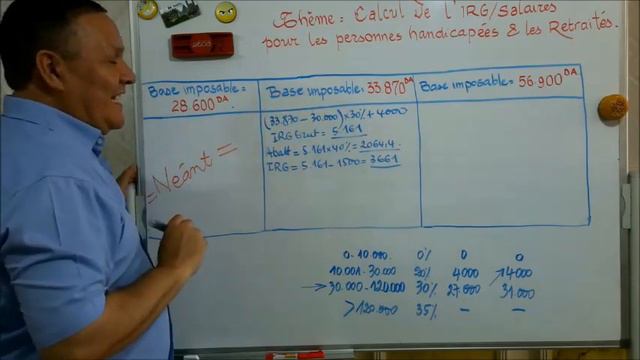 Thème = Calcul De l'IRG/Salaires
pour les personnes handicapées & les Retraités.
Base imposable= 28 600 DA.
Base imposable= 33.870 DA
Base imposable= 56.900 DA
=Néant=
(33.870 - 30.000) x 30% + 4000
IRG Brut = 5 161
Abatt = 5 161 x 40% = 2064.4
IRG = 5 161 - 1500 = 3661
0 - 10.000. 0% 0 0
10.001 - 30.000 20% 4000 4000
→ 30.000 - 120.000 30% 27.000 31.000
> 120.000 35% — —